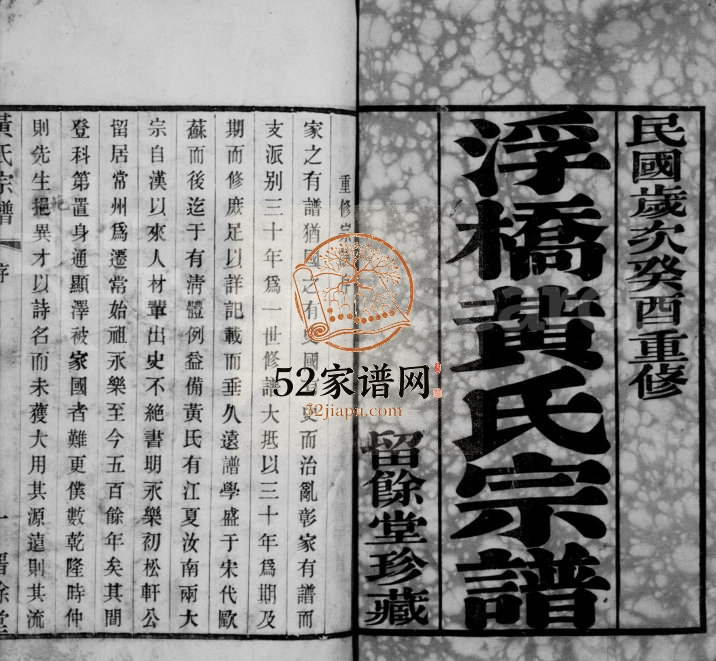 民國歲次癸酉重修
浮橋黃氏宗譜
留餘堂珍藏
重修宗
家之有譜猶之有國史而治亂彰家有譜而
支派别三十年爲一世修譜大抵以三十年爲期及
期而修庶足以詳記載而垂久遠譜學盛于宋代歐
蘇而後迄于有淸體例益備黃氏有江夏汝南兩大
宗自漢以來人材輩出史不絕書明永樂初松軒公
留居常州爲遷常始祖永樂至今五百餘年矣其間
登科第置身通顯澤被家國者難更僕數乾隆時仲
則先生挹異才以詩名而未獲大用其源遠則其流
黃氏宗譜
序
一
留餘堂
52家谱网
52jiapu.com